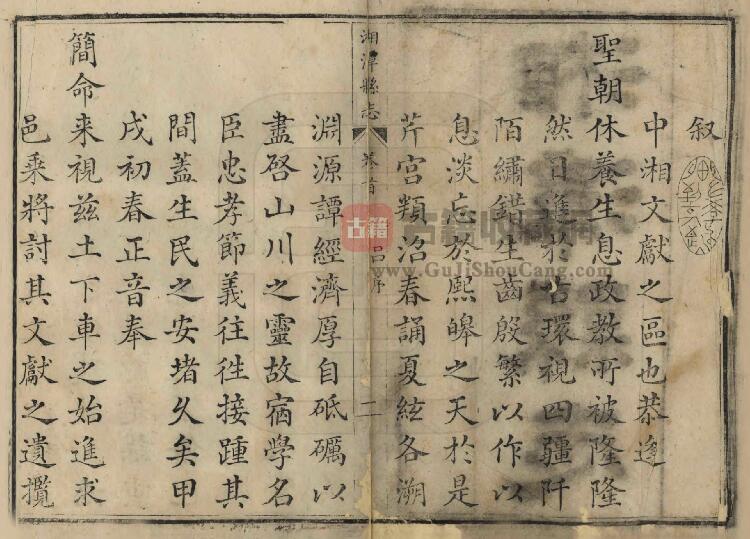 叙
中湘文獻之區也恭逢
聖朝休養生息政教所被隆隆
然日進於古環視四疆阡
陌繡錯生齒殷繁以作以
息淡忘於熙皞之天於是
芹宮類沼春誦夏絃各溯
湘潭縣志 卷首 呂序 二
淵源譚經濟厚自砥礪以
盡啓山川之靈故宿學名
臣忠孝節義往往接踵其
間蓋生民之安堵久矣甲
戌初春正音奉
簡命来視兹土下車之始進求
邑乘將討其文獻之遺攬
古籍
古籍收藏网
www.GuJiShouCang.com